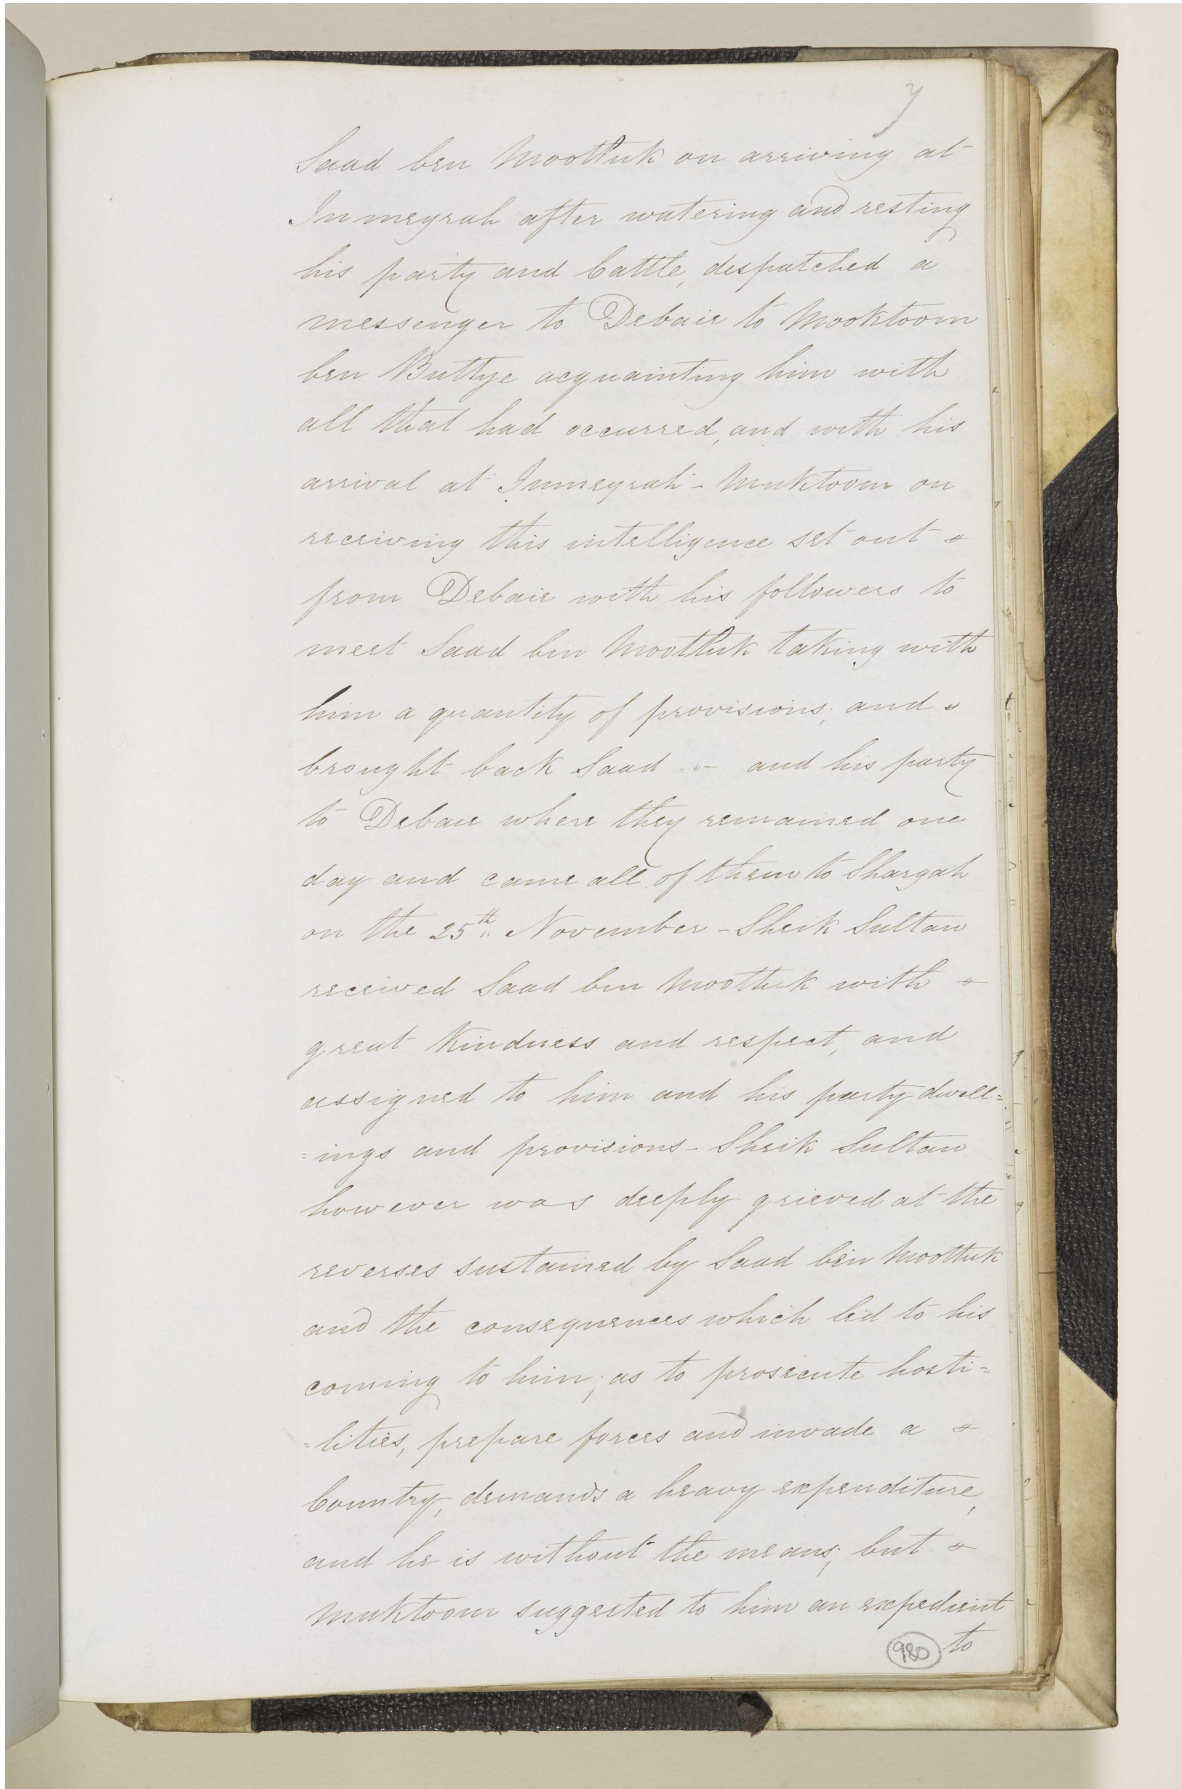 Saad ben Moottuk on arriving at
Inmeyrah after watering and resting
his party and Cattle, dispatched a
messenger to Debaie to Mooktoom
ben Buttye acquainting him with
all that had occurred, and with his
arrival at Inmeyrah - Muktoom on
receiving this intelligence set out
from Debaie with his followers to
meet Saad bin Moottuk taking with
him a quantity of provisions; and
brought back Saad - and his party
to Debaie where they remained one
day and came all of them to Shargah
on the 25th November - Sheik Sultan
received Saad ben Moottuk with
great kindness and respect, and
assigned to him and his party dwell=
=ings and provisions - Sheik Sultan
however was deeply grieved at the
reverses sustained by Saad bin Moottuk
and the consequences which led to his
coming to him; as to prosecute hosti=
=lities, prepare forces and invade a
Country, demands a heavy expenditure,
and he is without the means; but
Muktoom suggested to him an expedient
to
980